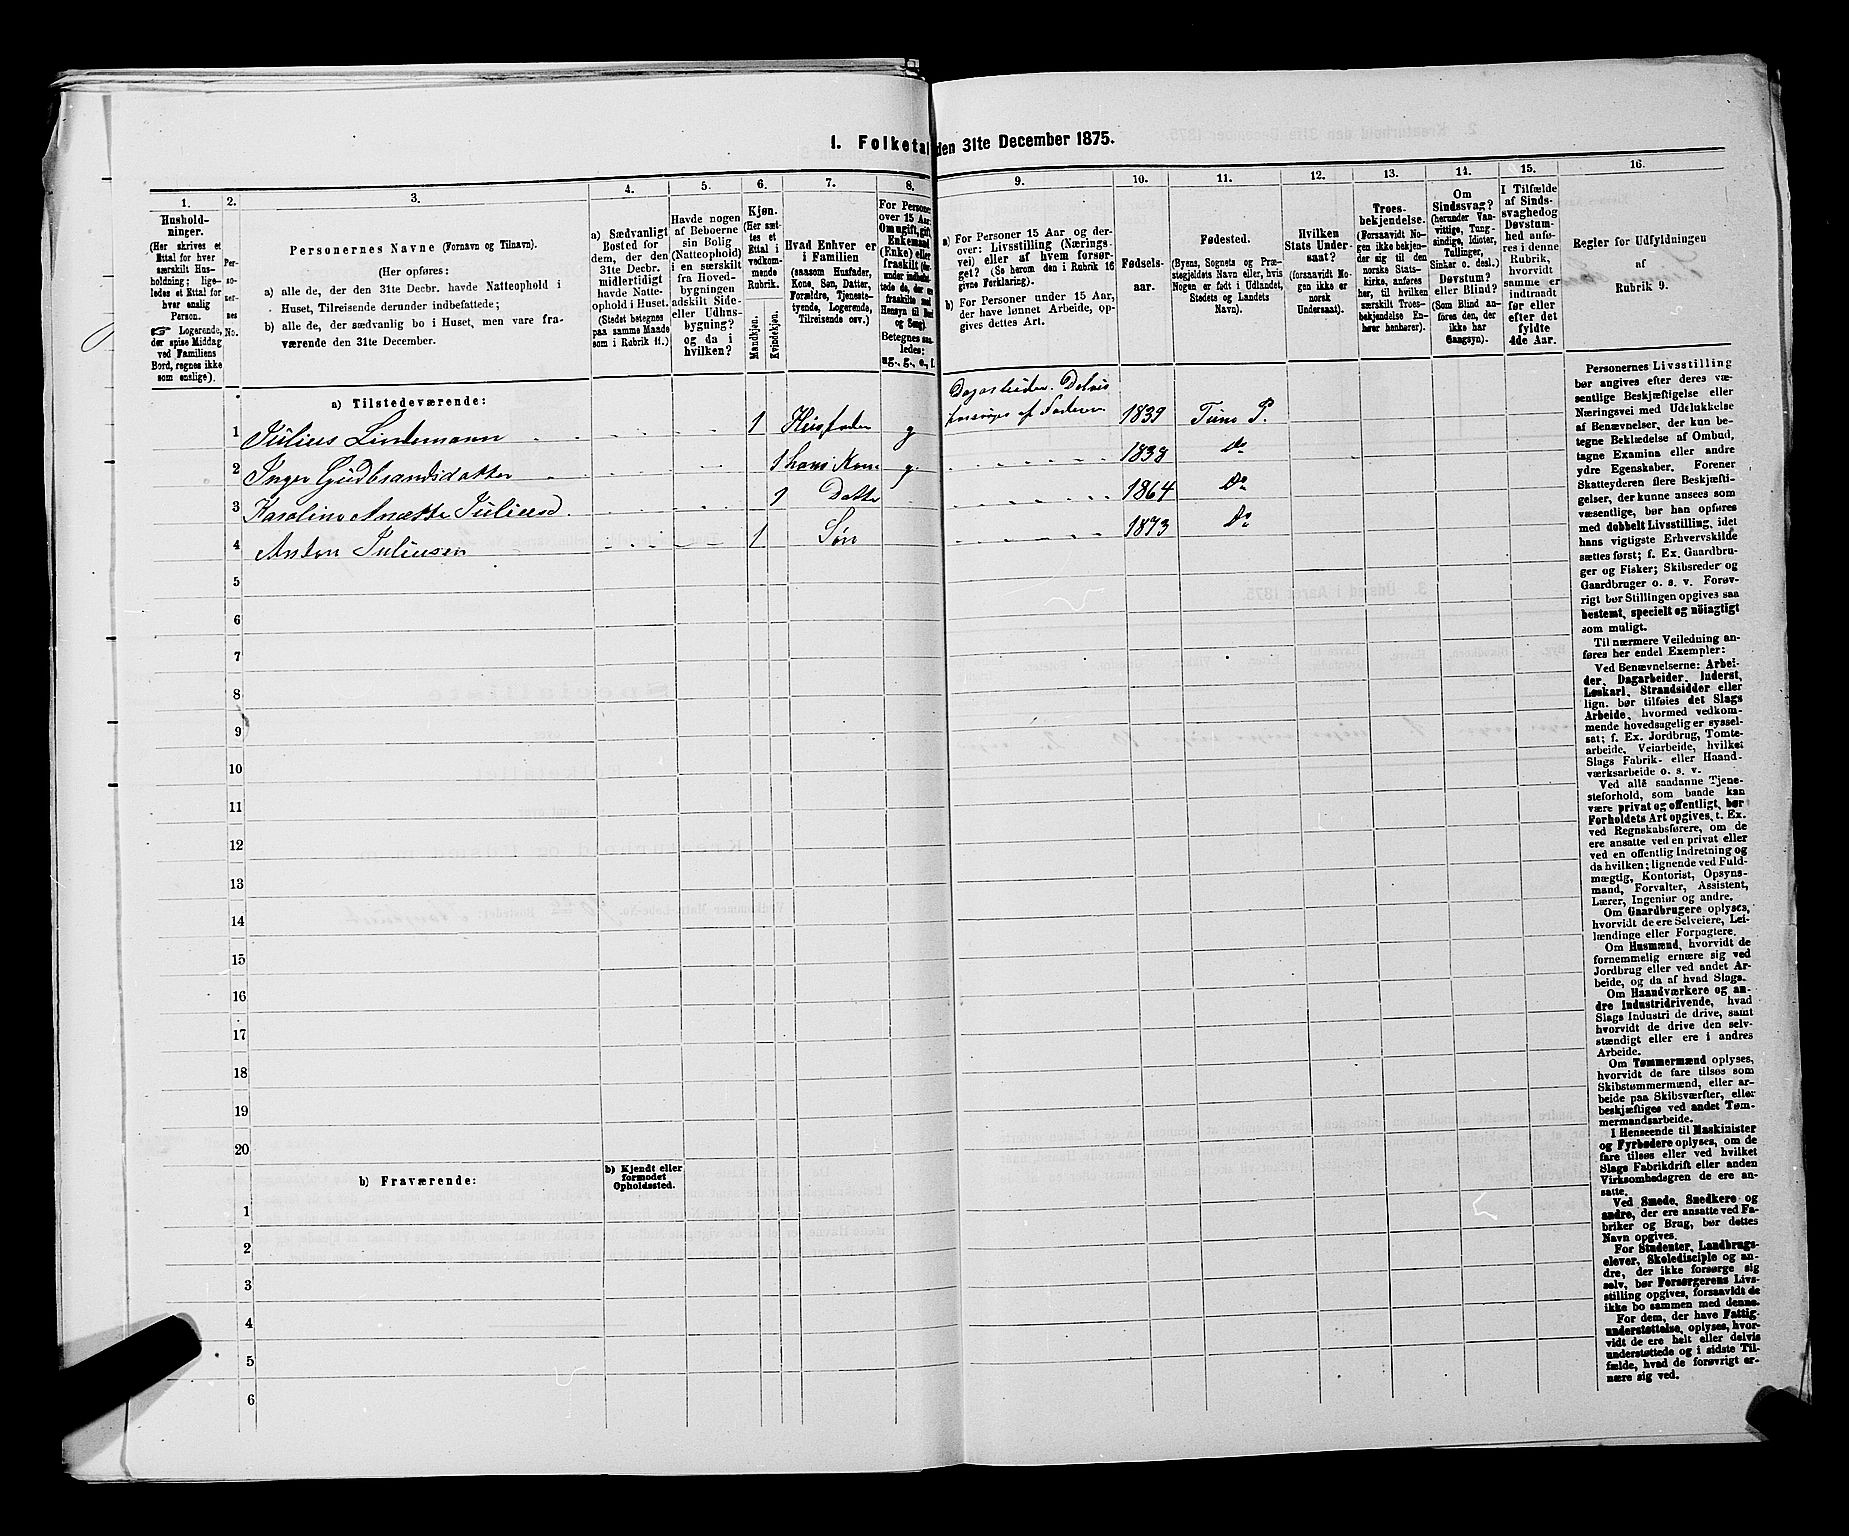 1. Folketal den 31te December 1875.
1.
Hushold-
ninger.
(Her skrives et
Ettal for hver
særskilt Hus-
holdning; lige-
ledes et Ettal for
hver enslig
Person.
☞ Logerende,
der spise Middag
ved Familiens
Bord, regnes ikke
som enslige).
2.
Per-
so-
ner-
nes
No.
3.
Personernes Navne (Fornavn og Tilnavn).
(Her opføres:
a) alle de, der den 31te Decbr. havde Natteophold i
Huset, Tilreisende derunder indbefattede;
b) alle de, der sædvanlig bo i Huset, men vare fra-
værende den 31te December.
4.
a) Sædvanligt
Bosted for
dem, der den
31te Decbr.
midlertidigt
havde Natte-
ophold i Huset.
(Stedet betegnes
paa samme Maade
som i Rubrik 11.)
5.
Havde nogen
af Beboerne
sin Bolig
(Natteophold)
i en særskilt
fra Hoved-
bygningen
adskilt Side-
eller Udhus-
bygning?
og da i
hvilken?
6.
Kjøn.
(Her sæt-
tes et
Ettal i
vedkom-
mende
Rubrik.
Mandkjøn.
Kvindekjøn.
7.
Hvad Enhver er
i Familien
(saasom Husfader,
Kone, Søn, Datter,
Forældre, Tjeneste-
tyende, Logerende,
Tilreisende osv.)
8.
For Personer
over 15 Aar:
Om ugift, gift,
Enkemand
(Enke) eller
fraskilt
Betegnes saa-
ledes:
ug., g., e., f.
9.
a) For Personer 15 Aar og der-
over: Livsstilling (Nærings-
vei) eller af hvem forsør-
get? (Se herom den i Rubrik 16
givne Forklaring).
b) For Personer under 15 Aar,
der have lønnet Arbeide, op-
gives dettes Art.
10.
Fødsels-
aar.
11.
Fødested.
(Byens, Sognets og Præ-
stegjeldets Navn eller, hvis
Nogen er født i Udlandet,
Stedets og Landets
Navn).
12.
Hvilken
Stats Under-
saat?
(forsaavidt No-
gen ikke er
norsk
Undersaat).
13.
Troes-
bekjendelse.
(Forsaavidt No-
gen ikke bekjen-
der sig til den
norske Stats-
kirke, anføres
her, til hvilken
særskilt Troes-
bekjendelse En-
hver henhører).
14.
Om
Sindssvag?
(herunder Van-
vittige, Tung-
sindige, Idioter,
Tullinger,
Sinker o. desl.)
Døvstum?
eller Blind?
(Som Blind an-
føres den, der
ikke har
Gangsyn).
15.
I Tilfælde
af Sinds-
svaghed og
Døvstum-
hed anfø-
res i denne
Rubrik,
hvorvidt
samme er
indtraadt
før eller
efter det
fyldte
4de Aar.
16.
Regler for Udfyldningen
af
Rubrik 9.
a) Tilstedeværende:
1 Julius Lindemann 1 Husfader g Dagarbeider. Delvis
forsørges af Faderen 1839 Tune P.
2 Inger Gudbrandsdatter 1 hans Kone g. 1838 Do
3 Karoline Anette Juliusd. 1 Datter 1864 Do
4 Anton Juliussen 1 Søn 1873 Do
5
6
7
8
9
10
11
12
13
14
15
16
17
18
19
20
b) Fraværende:
b) Kjendt eller
formodet
Opholdssted.
1
2
3
4
5
6
Personernes Livsstilling
bør angives efter deres væ-
sentlige Beskjæftigelse eller
Næringsvei med Udelukkelse
af Benævnelser, der kun be-
tegne Beklædelse af Ombud,
tagne Examina eller andre
ydre Egenskaber. Forener
Skatteyderen flere Beskjæfti-
gelser, der kunne ansees som
væsentlige, bør han opføres
med dobbelt Livsstilling, idet
hans vigtigste Erhvervskilde
sættes først; f. Ex. Gaardbru-
ger og Fisker; Skibsreder og
Gaardbruger o. s. v. Forøv-
rigt bør Stillingen opgives saa
bestemt, specielt og nöiagtigt
som muligt.
Til nærmere Veiledning an-
føres her endel Exempler:
Ved Benævnelserne: Arbei-
der, Dagarbeider, Inderst,
Løskarl, Strandsidder eller
lign. bør tilføies det Slags
Arbeide, hvormed vedkom-
mende hovedsagelig er syssel-
sat; f. Ex. Jordbrug, Tomte-
arbeide, Veiarbeide, hvilket
Slags Fabrik- eller Haand-
værksarbeide o. s. v.
Ved alle saadanne Tjene-
steforhold, som baade kan
være privat og offentligt, bør
Forholdets Art opgives, t. Ex.
ved Regnskabsførere, om de
ere ansatte ved en privat eller
ved en offentlig Indretning og
da hvilken; lignende ved Fuld-
mægtig, Kontorist, Opsyns-
mand, Forvalter, Assistent,
Lærer, Ingeniør og andre.
Om Gaardbrugere oplyses,
hvorvidt de ere Selveiere, Lei-
lændinge eller Forpagtere.
Om Husmænd, hvorvidt de
fornemmelig ernære sig ved
Jordbrug eller ved andet Ar-
beide, og da af hvad Slags.
Om Haandværkere og an-
dre Industridrivende, hvad
Slags Industri de drive, samt
hvorvidt de drive den selv-
stændigt eller ere i andres
Arbeide.
Om Tømmermænd oplyses,
hvorvidt de fare tilsøs som
Skibstømmermænd, eller ar-
beide paa Skibsværfter, eller
beskjæftiges ved andet Tøm-
mermandsarbeide.
I Henseende til Maskinister
og Fyrbødere oplyses, om de
fare tilsøs eller ved hvilket
Slags Fabrikdrift eller anden
Virksomhedsgren de ere an-
satte.
Ved Smede, Snedkere og
andre, der ere ansatte ved Fa-
briker og Brug, bør dettes
Navn opgives.
For Studenter, Landbrugs-
elever, Skoledisciple og an-
dre, der ikke forsørge sig
selv, bør Forsørgerens Livs-
stilling opgives, forsaavidt de
ikke bo sammen med denne.
For dem, der have Fattig-
understøttelse, oplyses, hvor-
vidt de ere helt eller delvis
understøttede og i sidste Til-
fælde, hvad de forøvrigt er-
nære sig ved.